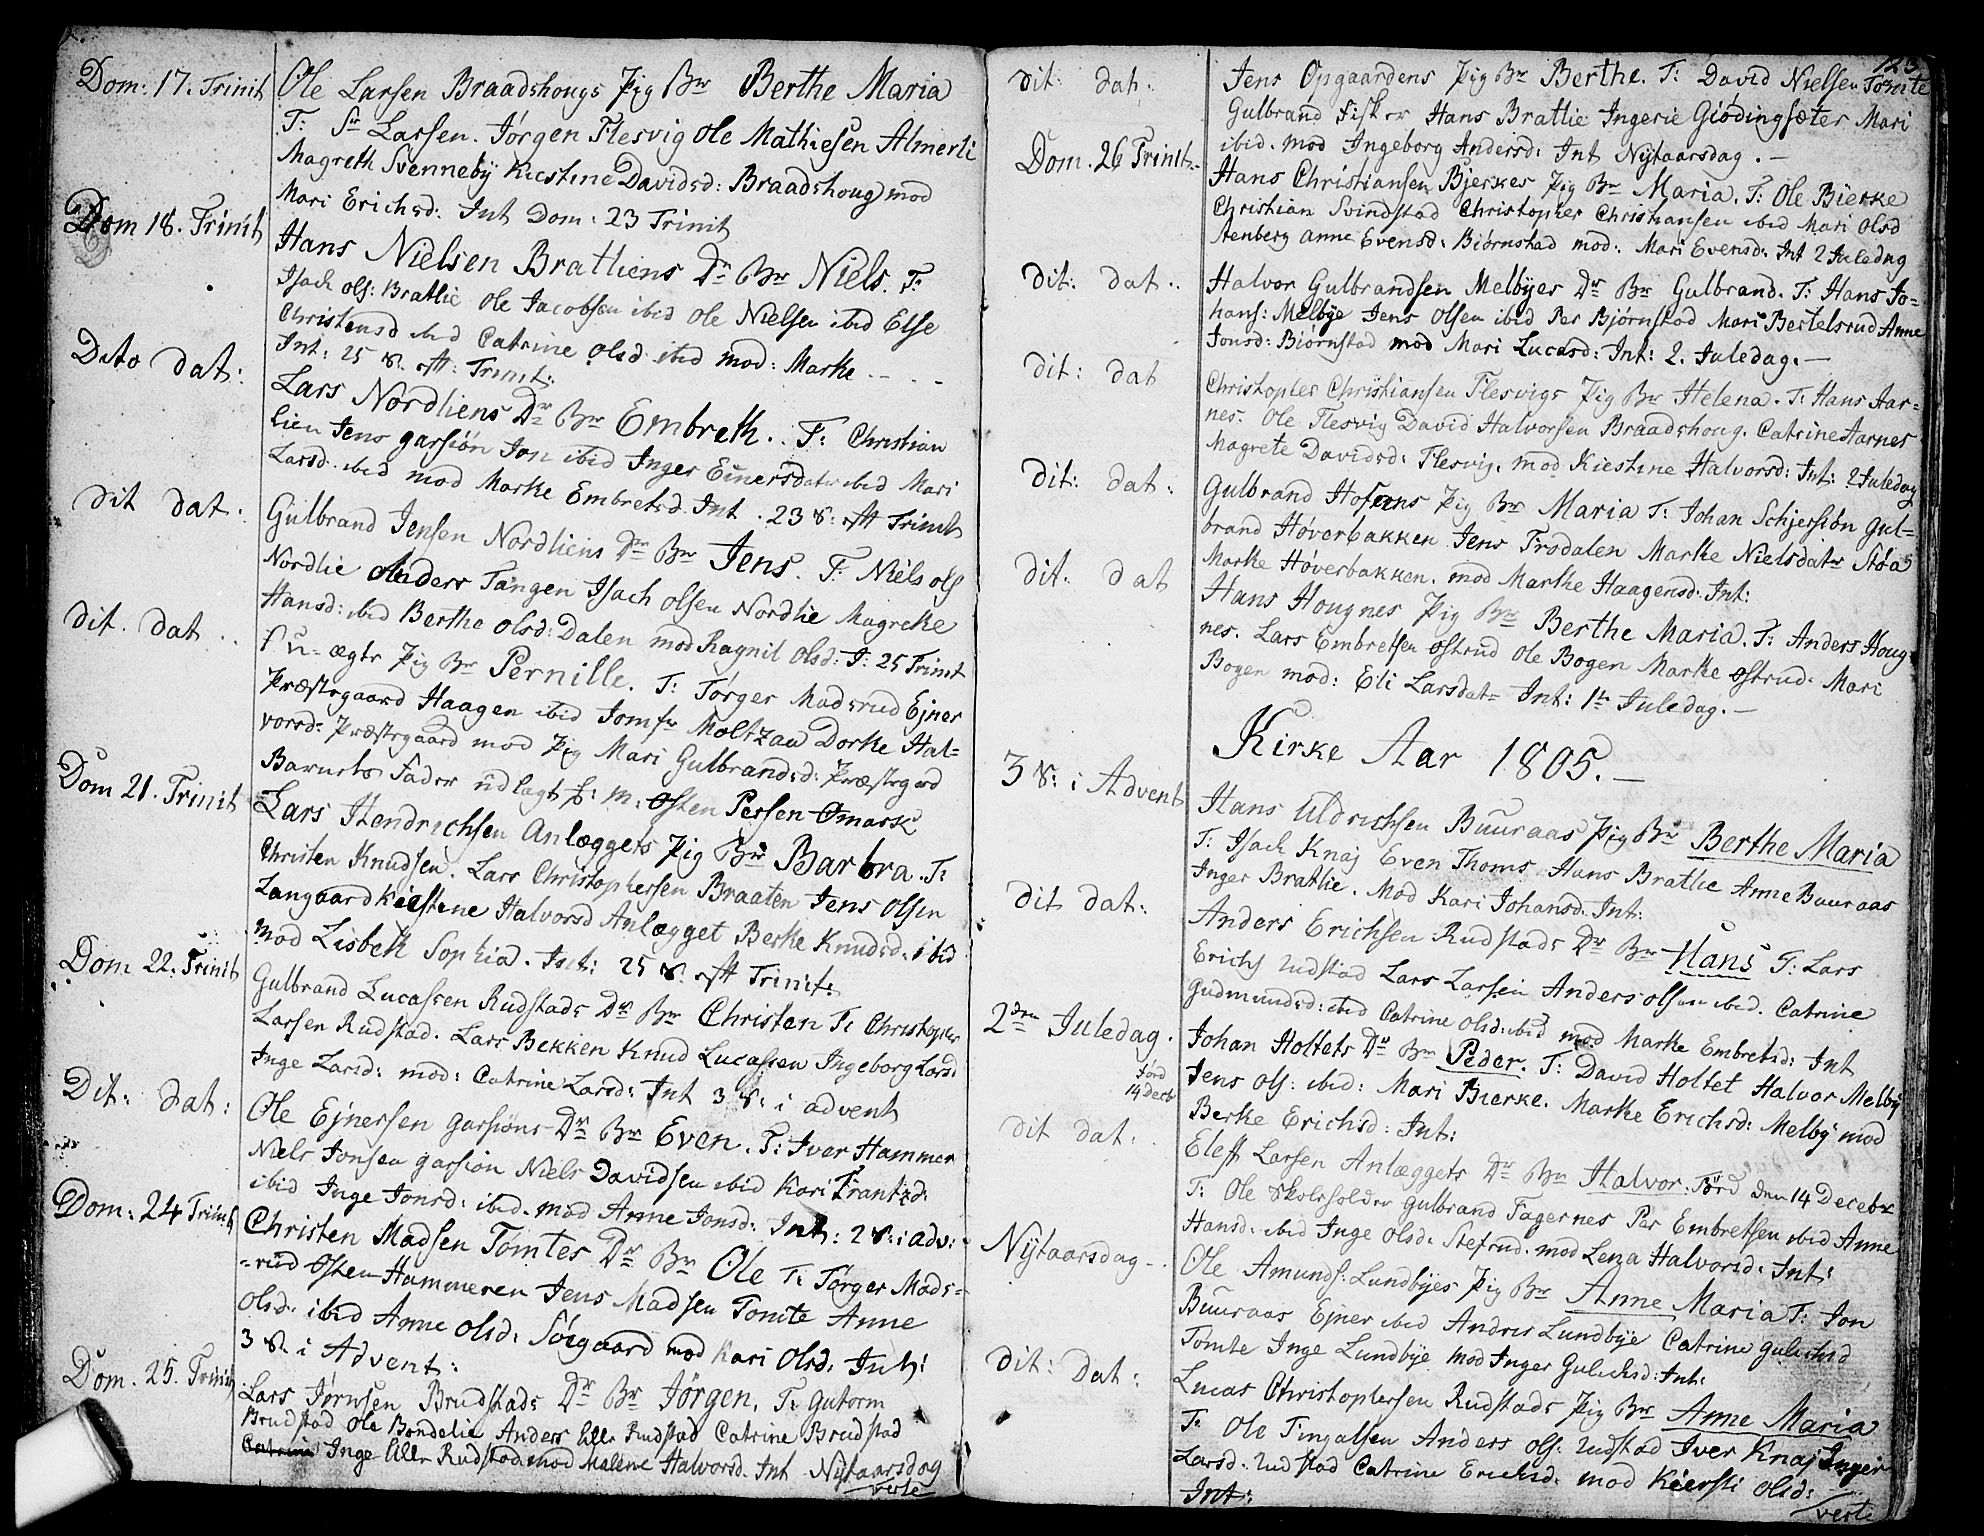 Dom: 17. Trinit
Ole Larsen Braadshougs Pig Br Berthe Maria
T: Sr Larsen. Jørgen Flesvig Ole Mathiesen Almerli
Magreth Svenneby Kiestine Davidsd: Braadshoug mod
Mari Erichsd: Int Dom: 23 Trinit
Dom 18. Trinit
Hans Nielsen Brathens Dr Br Niels. T:
Isach ols: Bratlie Ole Jacobsen ibid Ole Nielsen ibid Else
Christensd ibid Catrine olsd ibid mod: Marke
Int: 25 S. eft: Trinit:
Dito dat:
Lars Nordliens Dr Br Embreth. T: Christian
Lien Jens garsiøn Jon ibid Inger Einersdatr ibid Mari
Larsd. ibid mod Marke Embretsd. Int. 23 S: eft Trinit
dit dat:
Gulbrand Jensen Nordliens Dr Br Jens. T: Niels ols
Nordlie Anders Tangen Isach olsen Nordlie Magreke
Hansd: ibid Berthe olsd: Dalen mod Ragnil olsd: I: 25 Trinit
dit. dat..
u-ægte Pig Br Pernille. T: Tørger Madsrud Ejner
Præstegaard Haagen ibid Jomfr Moltzau Dorke Hal-
vorsd: Præstegaard mod Pig Mari Gulbrandsd: Præstegrd
Barnets Fader udlagt f: m: Østen Persen Ømark
Dom 21. Trinit
Lars Hendrichsen Anlæggets Pig Br Barbra. T:
Christen Knudsen. Lars Christophersen Braaten Jens olsen
Langaard Kiestene Halvorsd Anlægget Berke Knudsd. ibid
mod Lisbeth Sophia. Int: 25 S. eft Trinit:
Dom 22. Trinit
Gulbrand Lucassen Rudstads Dr Br Christen T: Christopher
Larsen Rudstad. Lars Bekken Knud Lucassen Ingeborg Larsd
Inge Larsd: mod: Catrine Larsd: Int 3 S: i advent
Dit: dat:
Ole Ejnersen garsiøns Dr Br Even. T: Iver Hammer
Niels Jonsen garsiøn Niels Davidsen ibid Kari Frantzd:
ibid Inge Jonsd: ibid. mod Anne Jonsd: Int: 2 S: i adv:
Dom: 24 Trinit
Christen Madsen Tomtes Dr Br Ole T: Tørger Mads-
-rud Østen Hammeren Jens Madsen Tomte Anne
olsd: ibid Anne olsd: Søegaard mod Kari Olsd. Int:
3 S. i Advent:
Dom. 25. Trinit
Lars Jørnsen Brudstads Dr Br Jørgen, T: Gutorm
Brudstad Ole Bondelie Anders Lille Rudstad Catrine Brudstad
Catrine Inge Lille Rudstad mod Malene Halvorsd. Int Nytaarsdag
verte
123
dit: dat:
Jens Opgaardens Pig Br Berthe. T: David Nielsen Tomte
Gulbrand Fisker Hans Bratlie Ingerie Giødingsæter Mari
ibid. mod Ingeborg Andersd: Int Nytaarsdag.
Dom. 26 Trinit.
Hans Christiansen Bjerkes Pig Br Maria. T: Ole Bierke
Christian Svindstad Christopher Christiansen ibid Mari Olsd
Stenberg Anne Evensd: Biørnstad mod: Mari Evensd. Int 2 Juledag
dit: dat..
Halvor Gulbrandsen Melbyes Dr Br Gulbrand. T: Hans Jo-
hans: Melbye Jens Olsen ibid Per Bjørnstad Mari Bertelsrud Anne
Jonsd: Biørnstad mod Mari Lucasd: Int: 2. Juledag.
dit: dat
Christopher Christiansen Flesvigs Pig Br Helena. T: Hans Aar-
nes. Ole Flesvig David Halvorsen Braadshoug. Catrine Aarnes
Magrete Davidsd: Flesvig. mod Kiestine Halvorsd: Int: 2 Juledag
dit: dat:
Gulbrand Hofsens Pig Br Maria T: Johan Schjersiøn Gul-
brand Høverbakken Jens Trodalen Marke Nielsdatr Støa
Marke Høverbakken. mod Marthe Haagensd. Int:
dit. dat
Hans Hougnes Pig Br Berthe Maria. T: Anders Houg
nes. Lars Embretsen Østrud Ole Bogen Marke Østrud. Mari
Bogen mod: Eli Larsdat= Int: 1te Juledag.
Kirke Aar 1805.
3 S: i Advent
Hans Uldrichsen Buuraas Pig Br Berthe Maria
T: Isach Knaj Even Thoms. Hans Bratlie Anne Buuraas
Inger Bratlie. Mod Kari Johansd. Int:
dit dat:
Anders Erichsen Rudstads Dr Br Hans T: Lars
Erichs Rudstad Lars Larsen Anders olsen ibid. Catrine
Gudmundsd: ibid Catrine olsd: ibid mod Marke Embretsd: Int
2den Juledag.
Johan Holtets Dr Br Peder. T: David Holtet Halvor Melby
født
14 Decbr
Jens ols: ibid: Mari Bierke. Marke Erichsd: Melby mod
Berke Erichsd: Int:
dit dat:
Eleff Larsen Anlæggets Dr Br Halvor. Fød den 14 Decebr
T: Ole Skoleholder Gulbrand Fagernes Per Embretsen ibid Anne
Hansd. ibid Inge olsd. Stefrud. mod Lena Halvorsd. Int:
Nytaarsdag
Ole Amunds: Lundbyes Pig Br Anne Maria T: Jon
Buuraas Ejner ibid Andres Lundbye Catrine Gulichsd
Tomte Inge Lundbye mod Inger Gulichsd: Int:
dit: dat:
Lucas Christophersen Rudstads Pig Br Anne Maria
T: Ole Tingalsen Anders ols: Rudstad Iver Knaj Inger
Larsd. Rudstad Catrine Erichsd. mod Kiersti Olsd:
Int:
verte